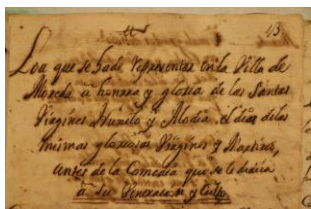 43
Loa que se ha de representar en la Villa de
Moreda a honrra y gloria de las Santas
Virgines Nunilo y Alodia el dia de las
mismas gloriosas Virgines y Martires,
antes de la Comedia que se le dedica
a su Veneracion y Culto